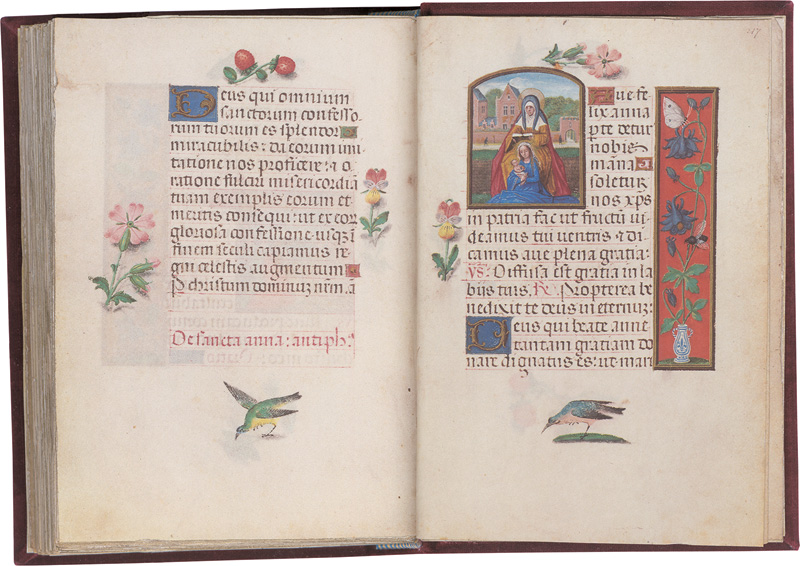 Deus qui omnium
sanctorum confesso
rum tuorum es splendor
mirabilis: da eorum imi
tatione nos proficere: et o
ratione fulciri misericordiā
tuam exemplis eorum et
meritis consequi: ut ex eor
gloriosa confessione usqz ī
finem seculi capiamus re
gni celestis augmentum
P christum dominuz nr̄m. a
De sancta anna: antiph:ᵃ
Aue fe
lix anna
p te detur
nobis
māna
soletur
nos xp̄s
in patria fac ut fructū ui
deamus tui uentris & di
camus aue plena gratia:
ys. Diffusa est gratia in la
bijs tuis. R. Propterea be
nedixit te deus in eternuz:
Deus qui beate anne
tantam gratiam do
nare dignatus es: ut mari